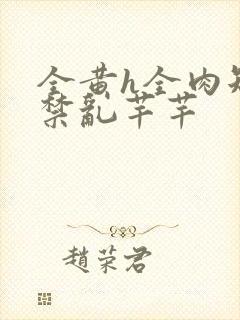 全黄h全肉短
禁乱芊芊
趙荣君